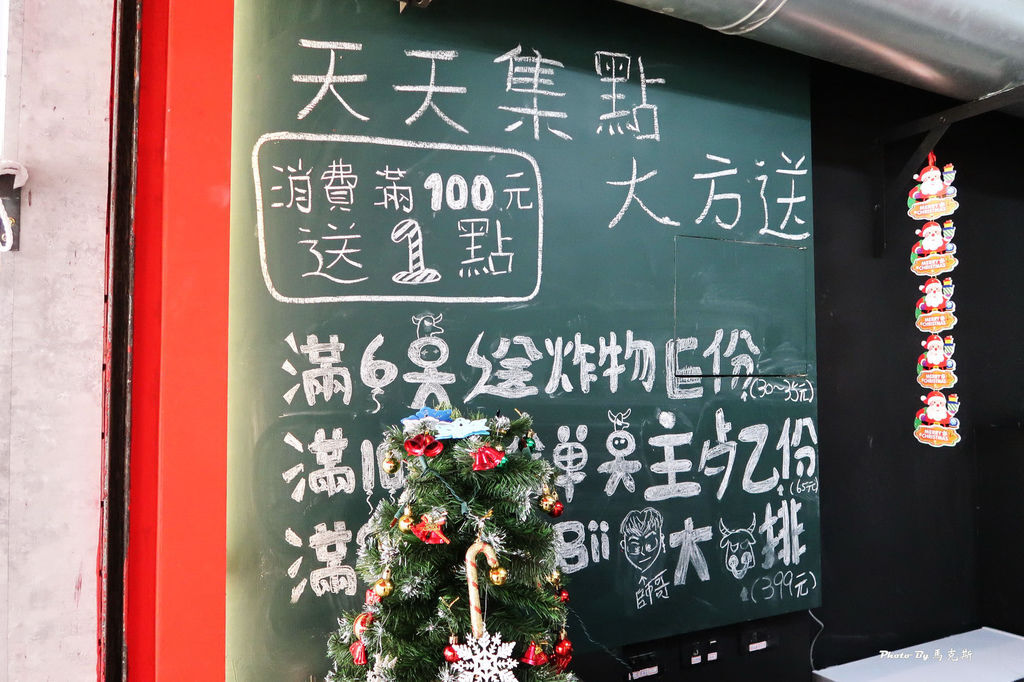 天天集點
大方送
消費滿100元
送1點
滿6 送炸物E份
(30~35元)
滿10 單 主 乙份
(65元)
滿 Bii 大 排
師哥
(399元)
MERRY
CHRISTMAS
MERRY
CHRISTMAS
MERRY
CHRISTMAS
MERRY
CHRISTMAS
MERRY
CHRISTMAS
Photo By 馬克斯